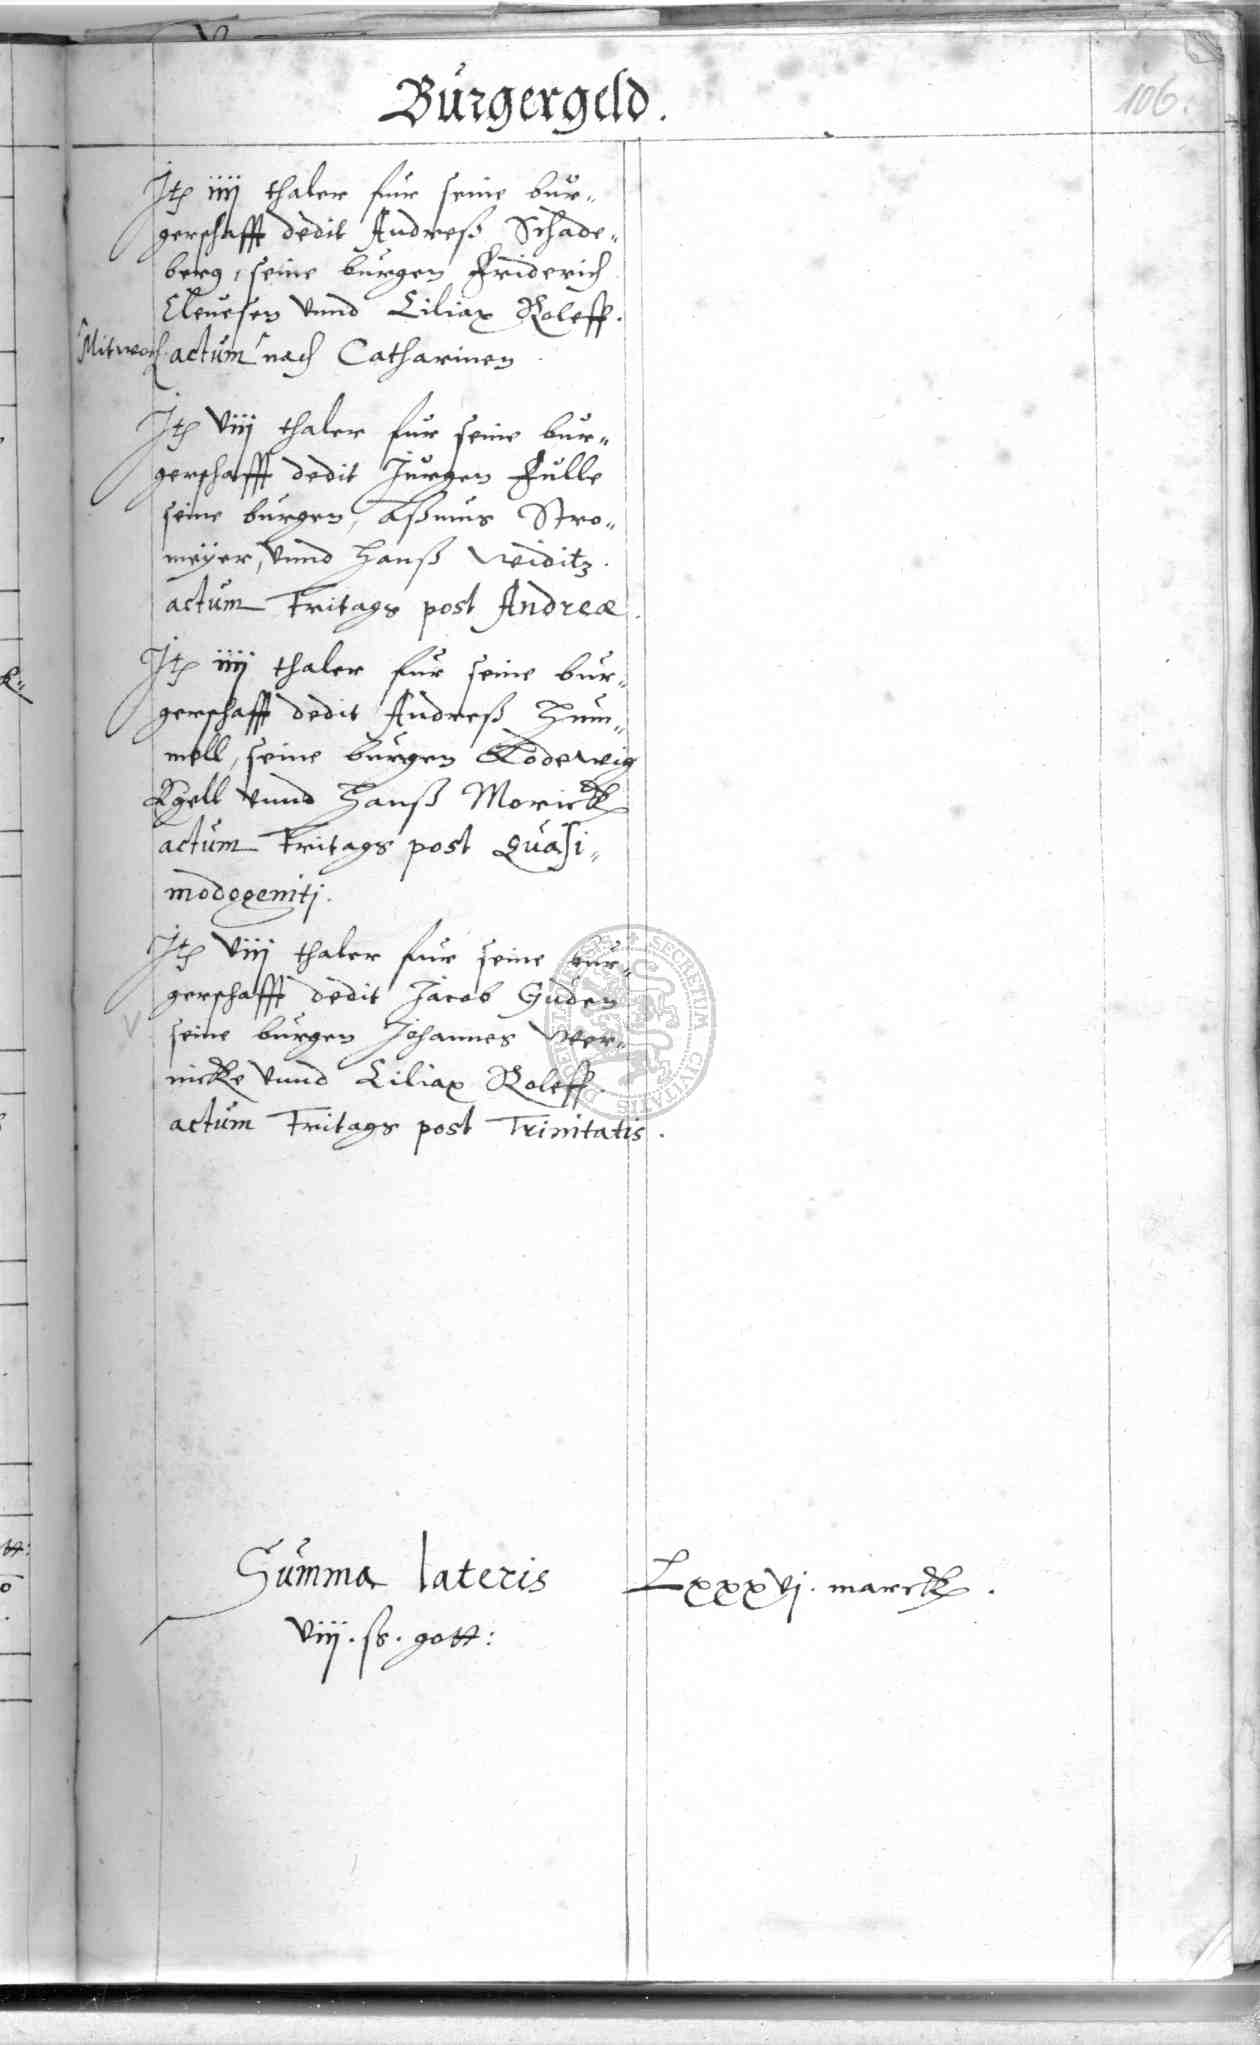 Bürgergeld.
106.
Jtē iiij thaler fur seine bur„
gerschafft dedit Andreß Schade„
berg, seine burgen Friderich
Cleuesen vnnd Ciliax Roleff.
Mitwoch actum nach Catharinen
Jtē viij thaler fur seine bur„
gerschafft dedit Jurgen Fulle
seine burgen, Aßmus Stro„
meÿer, vnnd Hanß Weiditz.
actum Fritags post Andreæ.
Jtē iiij thaler fur seine bur„
gerschafft dedit Andreß Hum„
mell, seine burgen Lodewig
Kyell vnnd Hanß Morick
actum Fritags post Quasi„
modogeniti.
Jtē viij thaler fur seine bur„
gerschafft dedit Jacob Guden
seine burgen Johannes Wer„
nicke vnnd Ciliax Roleff.
actum Fritags post Trinitatis.
Summa lateris Lxxxvj. marck.
viij. ß. gott:
SECRETUM CIVITATIS